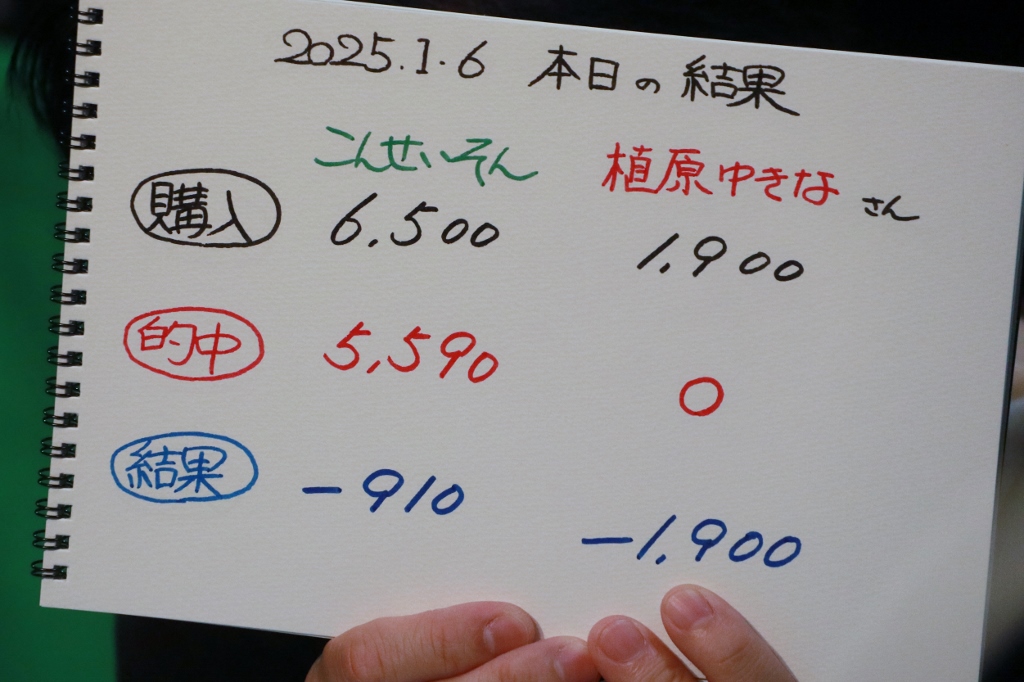 2025.1.6 本日の結果
こんせいそん 植原ゆきなさん
購入 6,500 1,900
的中 5,590 0
結果 -910 -1,900